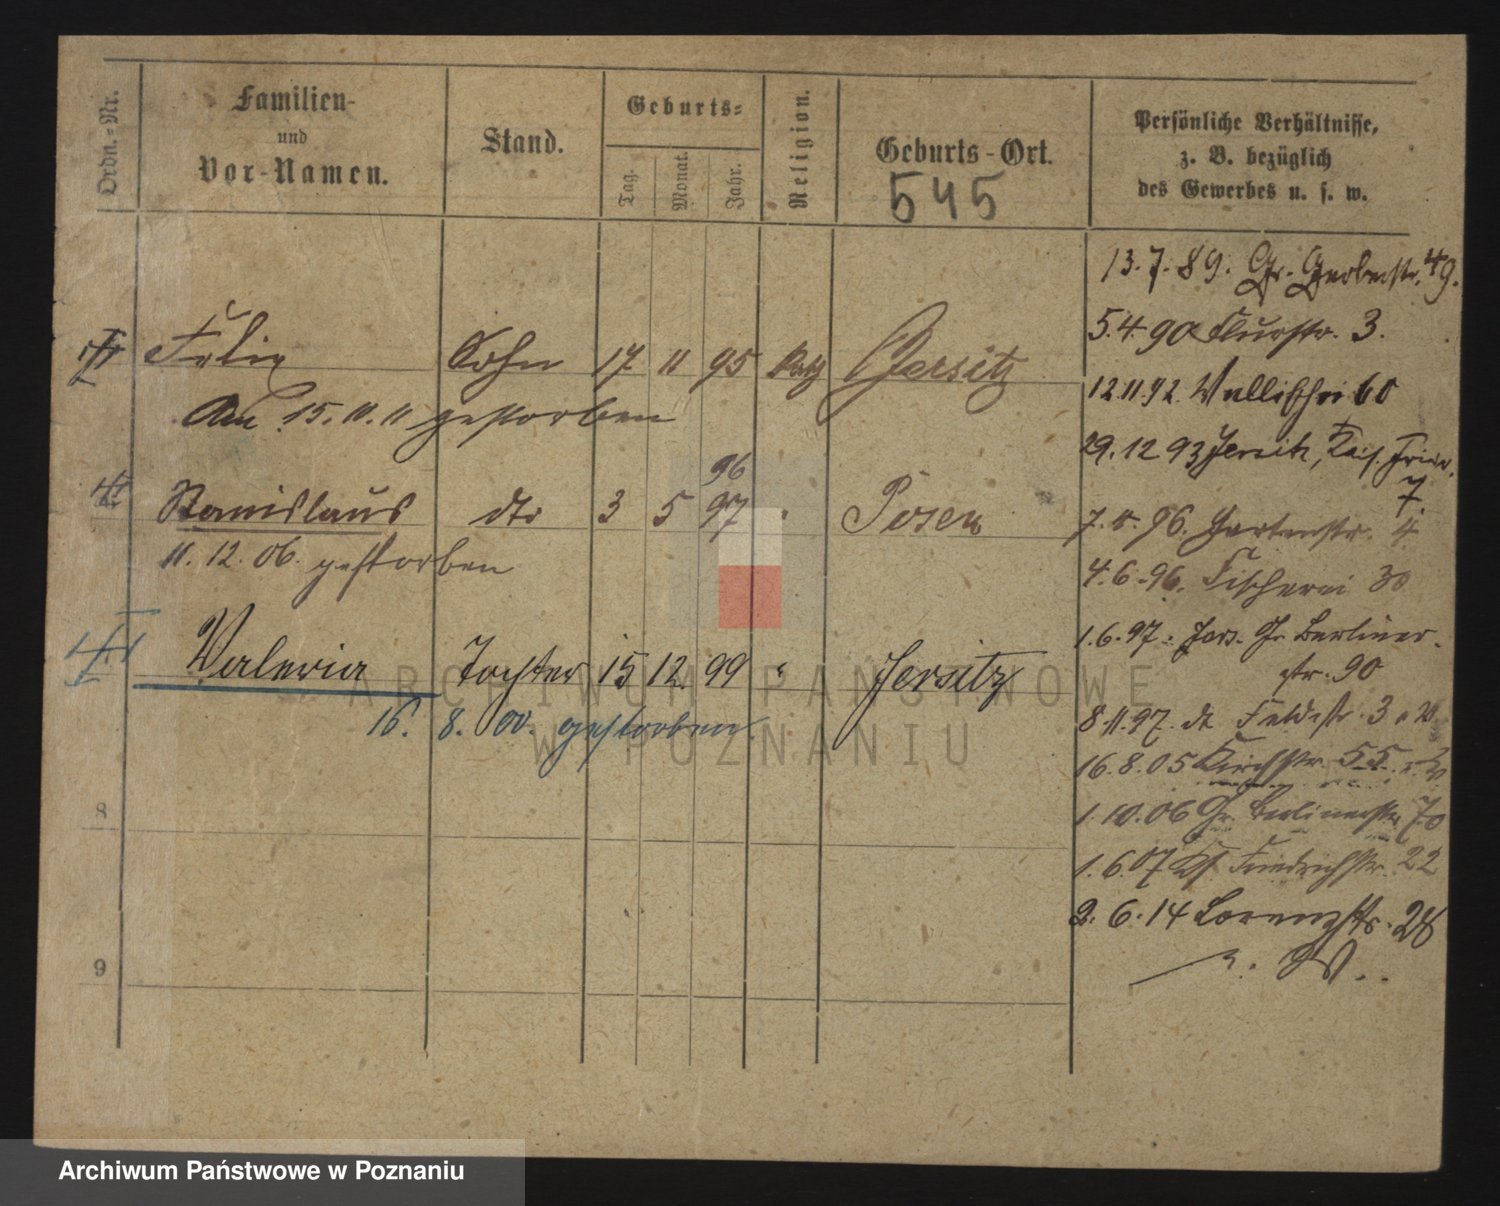 Ordn.-Nr.
Familien-
und
Vor-Namen.
Stand.
Geburts-
Tag.
Monat.
Jahr.
Religion.
Geburts-Ort.
545
Persönliche Verhältnisse,
z. B. bezüglich
des Gewerbes u. s. w.
Felix Sohn 17 11 95 Kath Jersitz
Am 15.10.11 gestorben
96
Stanislaus dto 3 5 97 " Posen
11.12.06. gestorben
Valeria Tochter 15 12. 99 " Jersitz
16. 8. 00. gestorben.
8
9
13.7.89. Gr. Gerberstr. 49.
5.4.90 Flurstr. 3.
12.11.92. Wallischei 60
29.12 93 Jersitz, Kais. Friedr.
7.
96. Gartenstr. 4
4.6.96. Fischerei 30
1.6.97. Jers. Gr Berliner-
str. 90
8.11.97. dt Feldstr. 3
16.8.05 Kirchstr. 55
1.10.06 Gr. Berlinerstr 70
1.6.07 Friedrichstr. 22
2.6.14 Lorenzstr. 28
ARCHIWUM PAŃSTWOWE
W POZNANIU
Archiwum Państwowe w Poznaniu